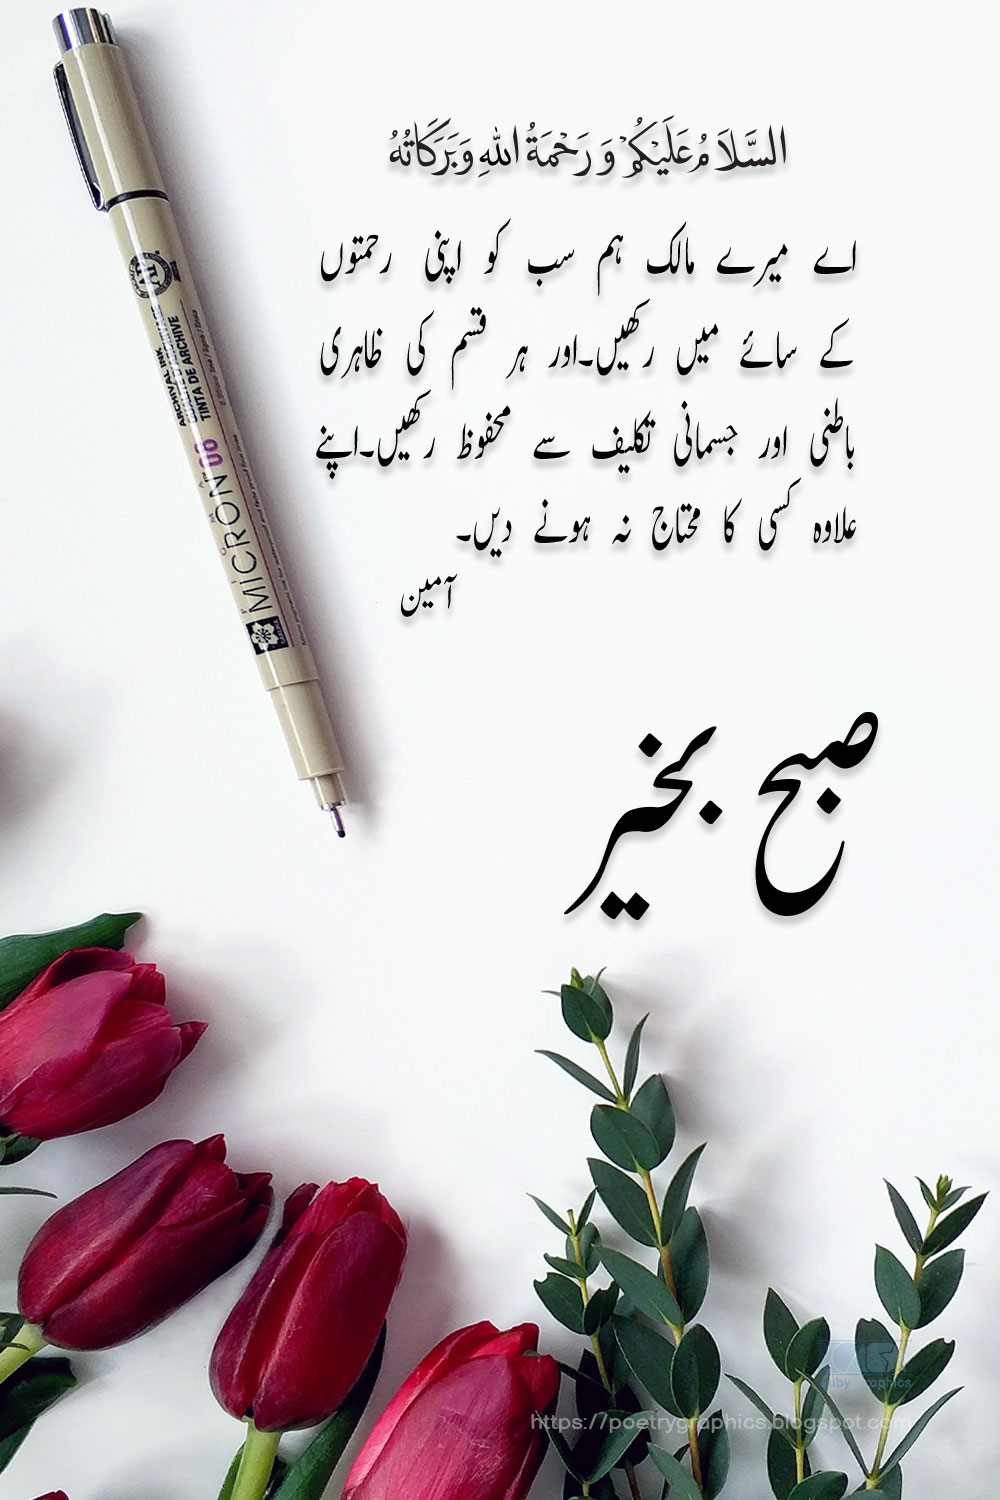 السَّلَامُ عَلَيْكُمْ وَ رَحْمَةُ اللهِ وَبَرَكَاتُهُ
اے میرے مالک ہم سب کو اپنی رحمتوں
کے سائے میں رکھیں۔اور ہر قسم کی ظاہری
باطنی اور جسمانی تکلیف سے محفوظ رکھیں۔اپنے
علاوہ کسی کا محتاج نہ ہونے دیں۔
آمین
صبح بخیر
ARCHIVAL INK
TINTA DE ARCHIVE
MICRON 08
https://poetrygraphics.blogspot.com